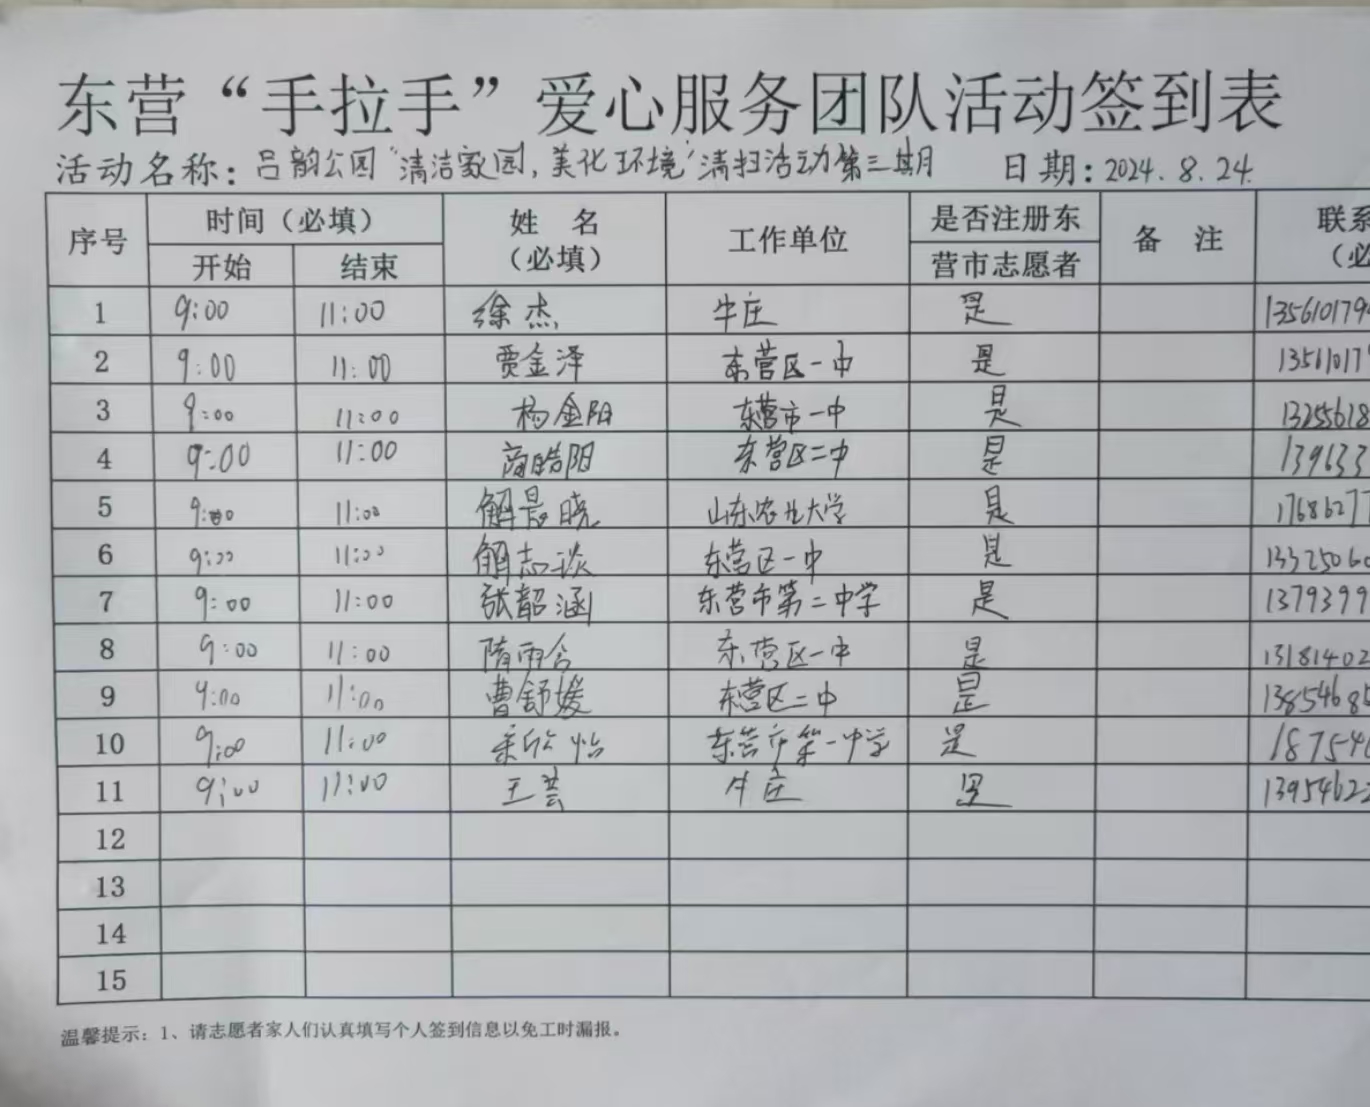 东营“手拉手”爱心服务团队活动签到表
活动名称：吕韵公园“清洁家园，美化环境”清扫活动第三期 日期：2024.8.24.
序号 时间（必填） 姓 名（必填） 工作单位 是否注册东营市志愿者 备 注 联系
开始 结束 （必
1 9:00 11:00 徐杰 牛庄 是 135610179
2 9:00 11:00 贾金泽 东营区一中 是 13561017
3 9:00 11:00 杨金阳 东营市一中 是 13255618
4 9:00 11:00 商皓阳 东营区二中 是 139633
5 9:00 11:00 解晨晓 山东农业大学 是 1768627
6 9:00 11:00 解志谈 东营区一中 是 1332506
7 9:00 11:00 张韶涵 东营市第二中学 是 1379399
8 9:00 11:00 隋雨含 东营区一中 是 13181402
9 9:00 11:00 曹舒媛 东营区二中 是 13854685
10 9:00 11:00 欣怡 东营市第一中学 是 187541
11 9:00 11:00 王芸 牛庄 是 13954622
12
13
14
15
温馨提示：1、请志愿者家人们认真填写个人签到信息以免工时漏报。